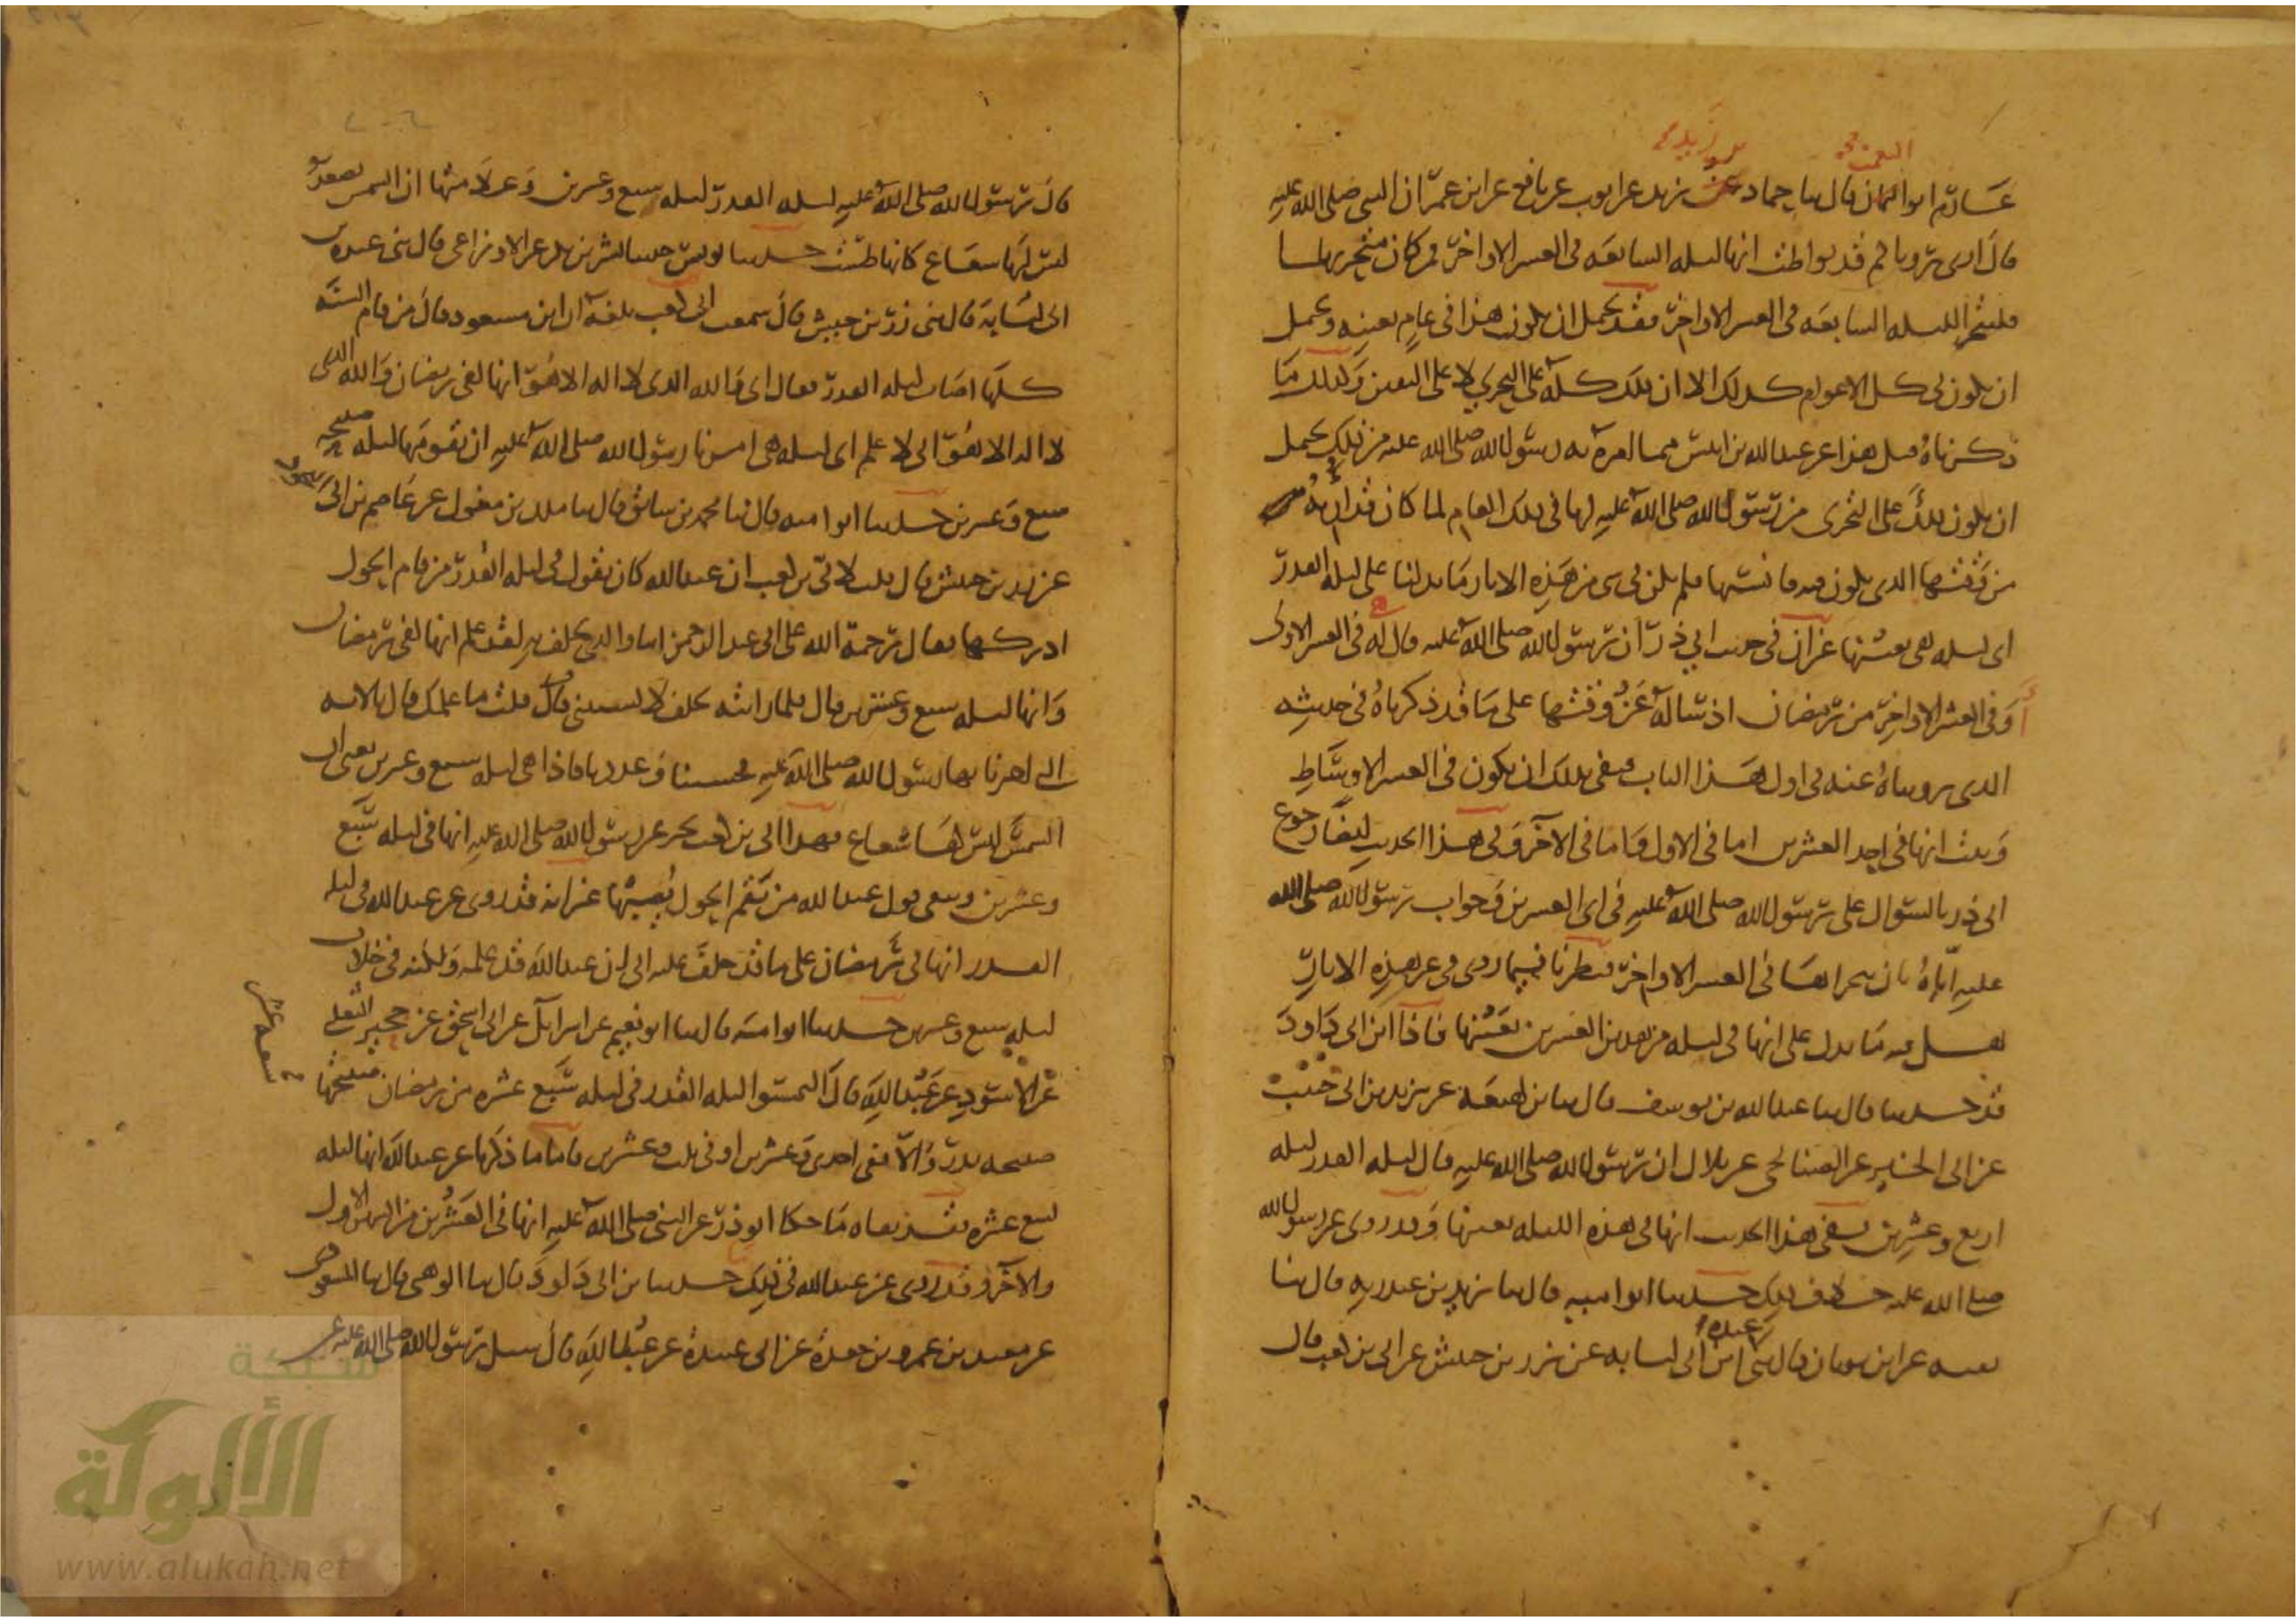 النعمن
بن زيد
عارم ابو النعمان قال ثنا حماد بن زيد عن ايوب عن نافع عن ابن عمر ان النبي صلى الله عليه
قال ارى رؤياكم قد تواطت انها ليله السابعه في العشر الاواخر فمن كان متحريها
فليتحر الليله السابعه في العشر الاواخر فقد يحتمل ان يكون هذا في عام بعينه ويحتمل
ان يكون في كل الاعوام كذلك الا ان ذلك كله على التحري لا على اليقين وكذلك ما
ذكرناه قبل هذا عن عبد الله بن انيس مما امره به رسول الله صلى الله عليه من ذلك يحتمل
ان يكون ذلك على التحري من رسول الله صلى الله عليه لها في ذلك العام لما كان قد اريه
من وقتها الذي يكون فيه فانسيها فلم يكن في شي من هذه الاثار ما يدلنا على ليله القدر
اي ليله هي بعينها غير ان في حديث ابي ذر ان رسول الله صلى الله عليه قال له في العشر الاول
او في العشر الاواخر من رمضان اذ ساله عن وقتها على ما قد ذكرناه في حديثه
الذي رويناه عنه في اول هذا الباب فنفى بذلك ان يكون في العشر الاوساط
وثبت انها في احد العشرين اما في الاول واما في الاخر وفي هذا الحديث ايضا رجوع
ابي ذر بالسوال على رسول الله صلى الله عليه في اي العشرين وجواب رسول الله صلى الله
عليه اياه بان يتحراها في العشر الاواخر فنظرنا فيما روي في غير هذه الاثار
هل فيه ما يدل على انها في ليله من هذين العشرين بعينها فاذا ابن ابي داود
قد حدثنا قال ثنا عبد الله بن يوسف قال ثنا بن لهيعة عن يزيد بن ابي حبيب
عن ابي الخير عن الصنابحي عن بلال ان رسول الله صلى الله عليه قال ليله القدر ليله
اربع وعشرين ففي هذا الحديث انها في هذه الليله بعينها وقد روي عن رسول الله
صلى الله عليه خلاف ذلك حدثنا ابو اميه قال ثنا يزيد بن عبد ربه قال ثنا
عبده
بقيه عن ابن ثوبان قال ثني ابن ابي لبابه عن زر بن حبيش عن ابي بن كعب قال
قال رسول الله صلى الله عليه ليله القدر ليله سبع وعشرين وعلامتها ان الشمس تصعد
ليس لها شعاع كانها طست حدثنا يونس ثنا بشر بن بكر عن الاوزاعي قال ثني عبده بن
ابي لبابة قال ثني زر بن حبيش قال سمعت ابي بن كعب بلغه ان ابن مسعود قال من قام السنة
كلها اصاب ليله القدر فقال ابي والله الذي لا اله الا هو انها لفي رمضان والله الذي
لا اله الا هو اني لاعلم اي ليله هي امرنا رسول الله صلى الله عليه ان نقومها ليله صبيحة
سبع وعشرين حدثنا ابو اميه قال ثنا محمد بن سابق قال ثنا ملك بن مغول عن عاصم بن ابي
عن زر بن حبيش قال قلت لابي بن كعب ان عبد الله كان يقول في ليله القدر من قام الحول
ادركها فقال رحمة الله على ابي عبد الرحمن اما والذي يحلف به لقد علم انها لفي رمضان
وانها ليله سبع وعشرين قال فلما رايته يحلف لا يستثني قال قلت ما علمك قال بالايه
التي اخبرنا بها رسول الله صلى الله عليه فحسبنا وعددنا فاذا هي ليله سبع وعشرين يعني ان
الشمس ليس لها شعاع فهذا ابي بن كعب يخبر عن رسول الله صلى الله عليه انها في ليله سبع
وعشرين وينفي قول عبد الله من يقم الحول يصبها غير انه قد روي عن عبد الله في ليله
القدر انها في رمضان على ما قد حلف عليه ابي ان عبد الله قد علمه ولكنه في خلاف
ليله سبع وعشرين حدثنا ابو اميه قال ثنا ابو نعيم عن اسرائل عن ابي اسحق عن حجير التغلبي
عن الاسود عن عبد الله قال التمسوا ليله القدر في ليله سبع عشره من رمضان صبيحتها
صبيحه بدر والا ففي احدى وعشرين او في ثلث وعشرين فاما ما ذكرنا عن عبد الله انها ليله
تسع عشره فقد نفاه ما حكا ابو ذر عن النبي صلى الله عليه انها في العشرين من الشهر الاول
والاخر وقد روي عن عبد الله في ذلك حدثنا بن ابي داود قال ثنا الوهبي قال ثنا المسعودي
عن سعيد بن عمرو بن جعدة عن ابي عبيدة عن عبد الله قال سئل رسول الله صلى الله عليه عن
شبكة
الألوكة
www.alukah.net